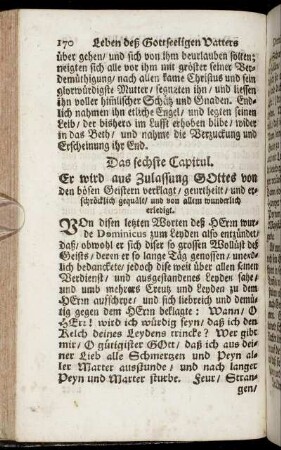 170 Leben deß Gottseeligen Vatters
über gehen/ und sich von ihm beurlauben solten;
neigten sich alle vor ihm mit gröster seiner Ver-
demüthigung/ nach allen kame Christus und sein
glorwürdigste Mutter/ segnaten ihn/ und liessen
ihn voller himlischer Schätz und Gnaden. End-
lich nahmen ihn etliche Engel/ und legten seinen
Leib/ der bishero im Lufft erhoben bliбe/ wider
in das Beth/ und nahme die Verzuckung und
Erscheinung ihr End.
Das sechste Capitul.
Er wird aus Zulassung GOttes von
den bösen Geistern verklagt/ geurtheilt/ und er-
schröcklich gequält/ und von allem wunderlich
erledigt.
VOn disen letzten Worten deß HErrn wur-
de Dominicus zum Leyden also entzündet/
daß/ obwohl er sich diser so grossen Wollüst deß
Geists/ deren er so lange Täg genossen/ unend-
lich bedanckete/ jedoch dise weit über allen seinen
Verdienst/ und ausgestandenes Leyden sahe/
und umb mehrers Creutz und Leyden zu dem
HErrn aufschrye/ und sich liebreich und demü-
tig gegen dem HErrn beklagte: Wann/ O
HErr! wird ich würdig seyn/ daß ich den
Kelch deines Leydens trincke? Wer gibt
mir/ O gütigister GOtt/ daß ich aus dei-
ner Lieb alle Schmertzen und Peyn al-
ler Marter ausstunde/ und nach langer
Peyn und Marter sturbe. Feur/ Stran-
gen/